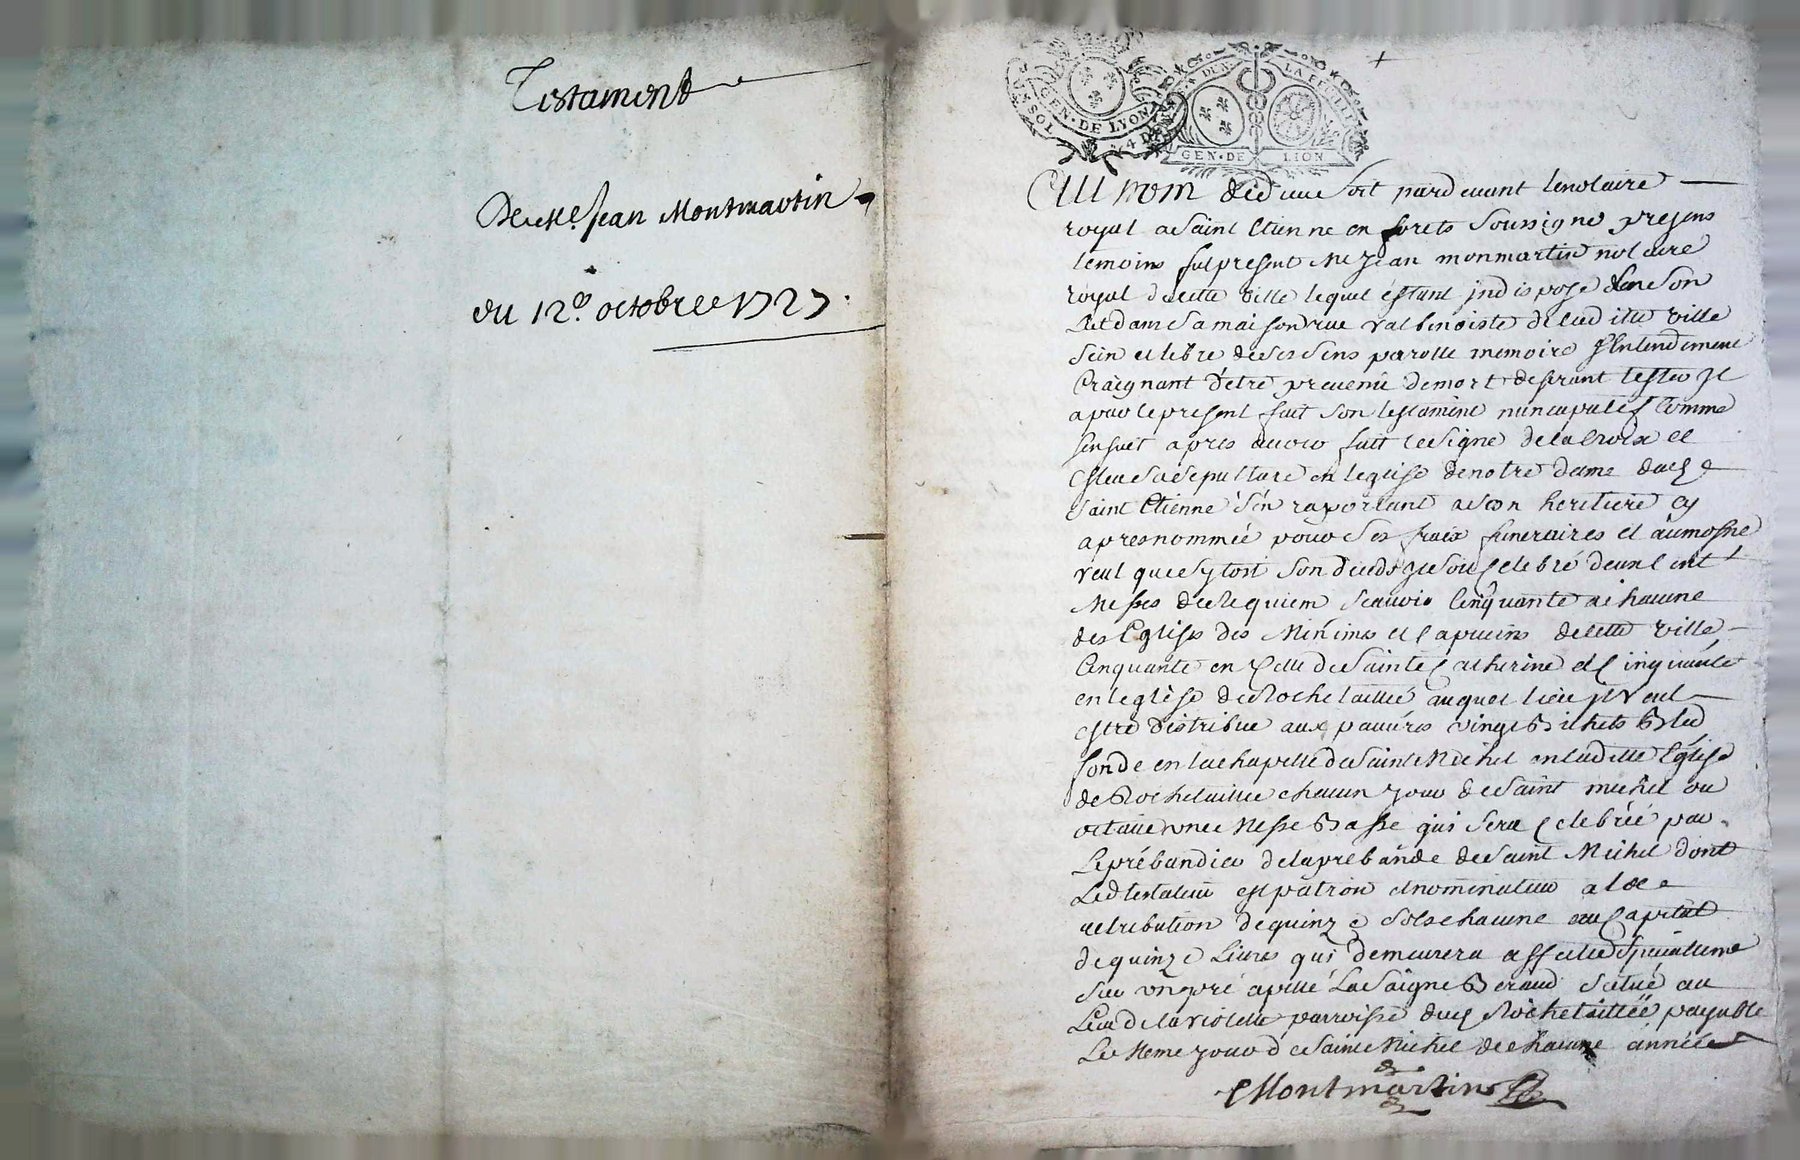 Testament
De Me. Jean Montmartin
du 12e. octobre 1727.
GEN. DE LYON
GEN. DE LION
Au nom de dieu soit par devant le notaire
royal a Saint Etienne en forets Soussigné presens
temoins fut present Me Jean monmartin notaire
royal de cette ville lequel estant indisposé dans son
Lit dans sa maison rue valbenoiste de lad itte ville
sein et libre de ses sens parolle memoire & entendement
Craignant d'être prevenu de mort desirant tester il
a par le present fait son testament nuncupatif comme
sensuit apres avoir fait le signe de la Croix et
esleu sa sepulture en leglise de notre dame dud
saint Etienne s'en raportant a son heritiere cy
apres nommée pour ses fraix funeraires et aumosne
veut que sytost son deceds il soit celebré deux cent
Messes de Requiem scavoir Cinquante a chacune
des Eglises des Minimes et Capucins de cette ville
Cinquante en Celle de Sainte Catherine et Cinquante
en leglise de Rochetaillée auquel lieu il veut
estre distribue aux pauvres vingt Bichets Bled
fonde en la chapelle de Saint Michel en ladite Eglise
de Rochetaillée chacun jour de Saint michel ou
octave une Messe Basse qui sera Celebrée par
Le prébandier de la prebande de Saint Michel dont
Led testateur est patron et nominateur a la
retribution de quinze sols chacune au Capital
de quinze Livres qui demeurera affectée Specialleme
sur un pré apellé La Saigne Beraud scitué au
Lieu de la violette parroisse dud Rochetaillée payable
Le Meme jour de Saint Michel de chacune année
Montmartin